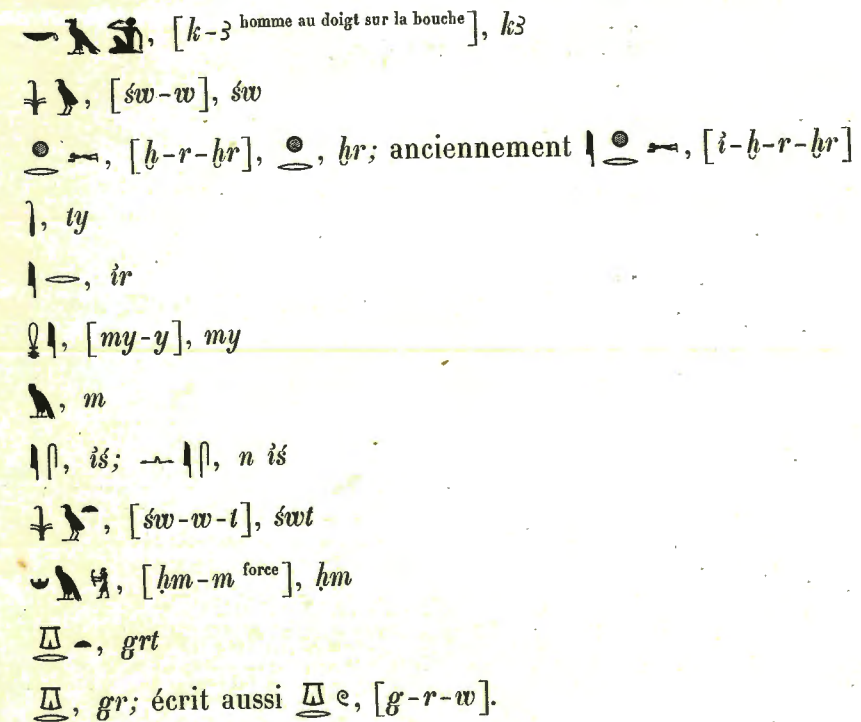 𓎡𓄿𓀁, [k-ꜣ homme au doigt sur la bouche], kꜣ
𓇓𓅱, [św-w], św
𓐍𓂋, [ḫ-r-ḫr], 𓐍𓂋, ḫr; anciennement 𓇋𓐍𓂋, [i҆-ḫ-r-ḫr]
𓍘, ty
𓇋𓂋, i҆r
𓏇𓇋, [my-y], my
𓅓, m
𓇋𓋴, i҆ś; 𓂜𓇋𓋴, n i҆ś
𓇓𓅱𓏏, [św-w-t], śwt
𓈞𓅓𓀜, [ḥm-m force], ḥm
𓎼𓂋𓏏, grt
𓎼𓂋, gr; écrit aussi 𓎼𓂋𓏲, [g-r-w].